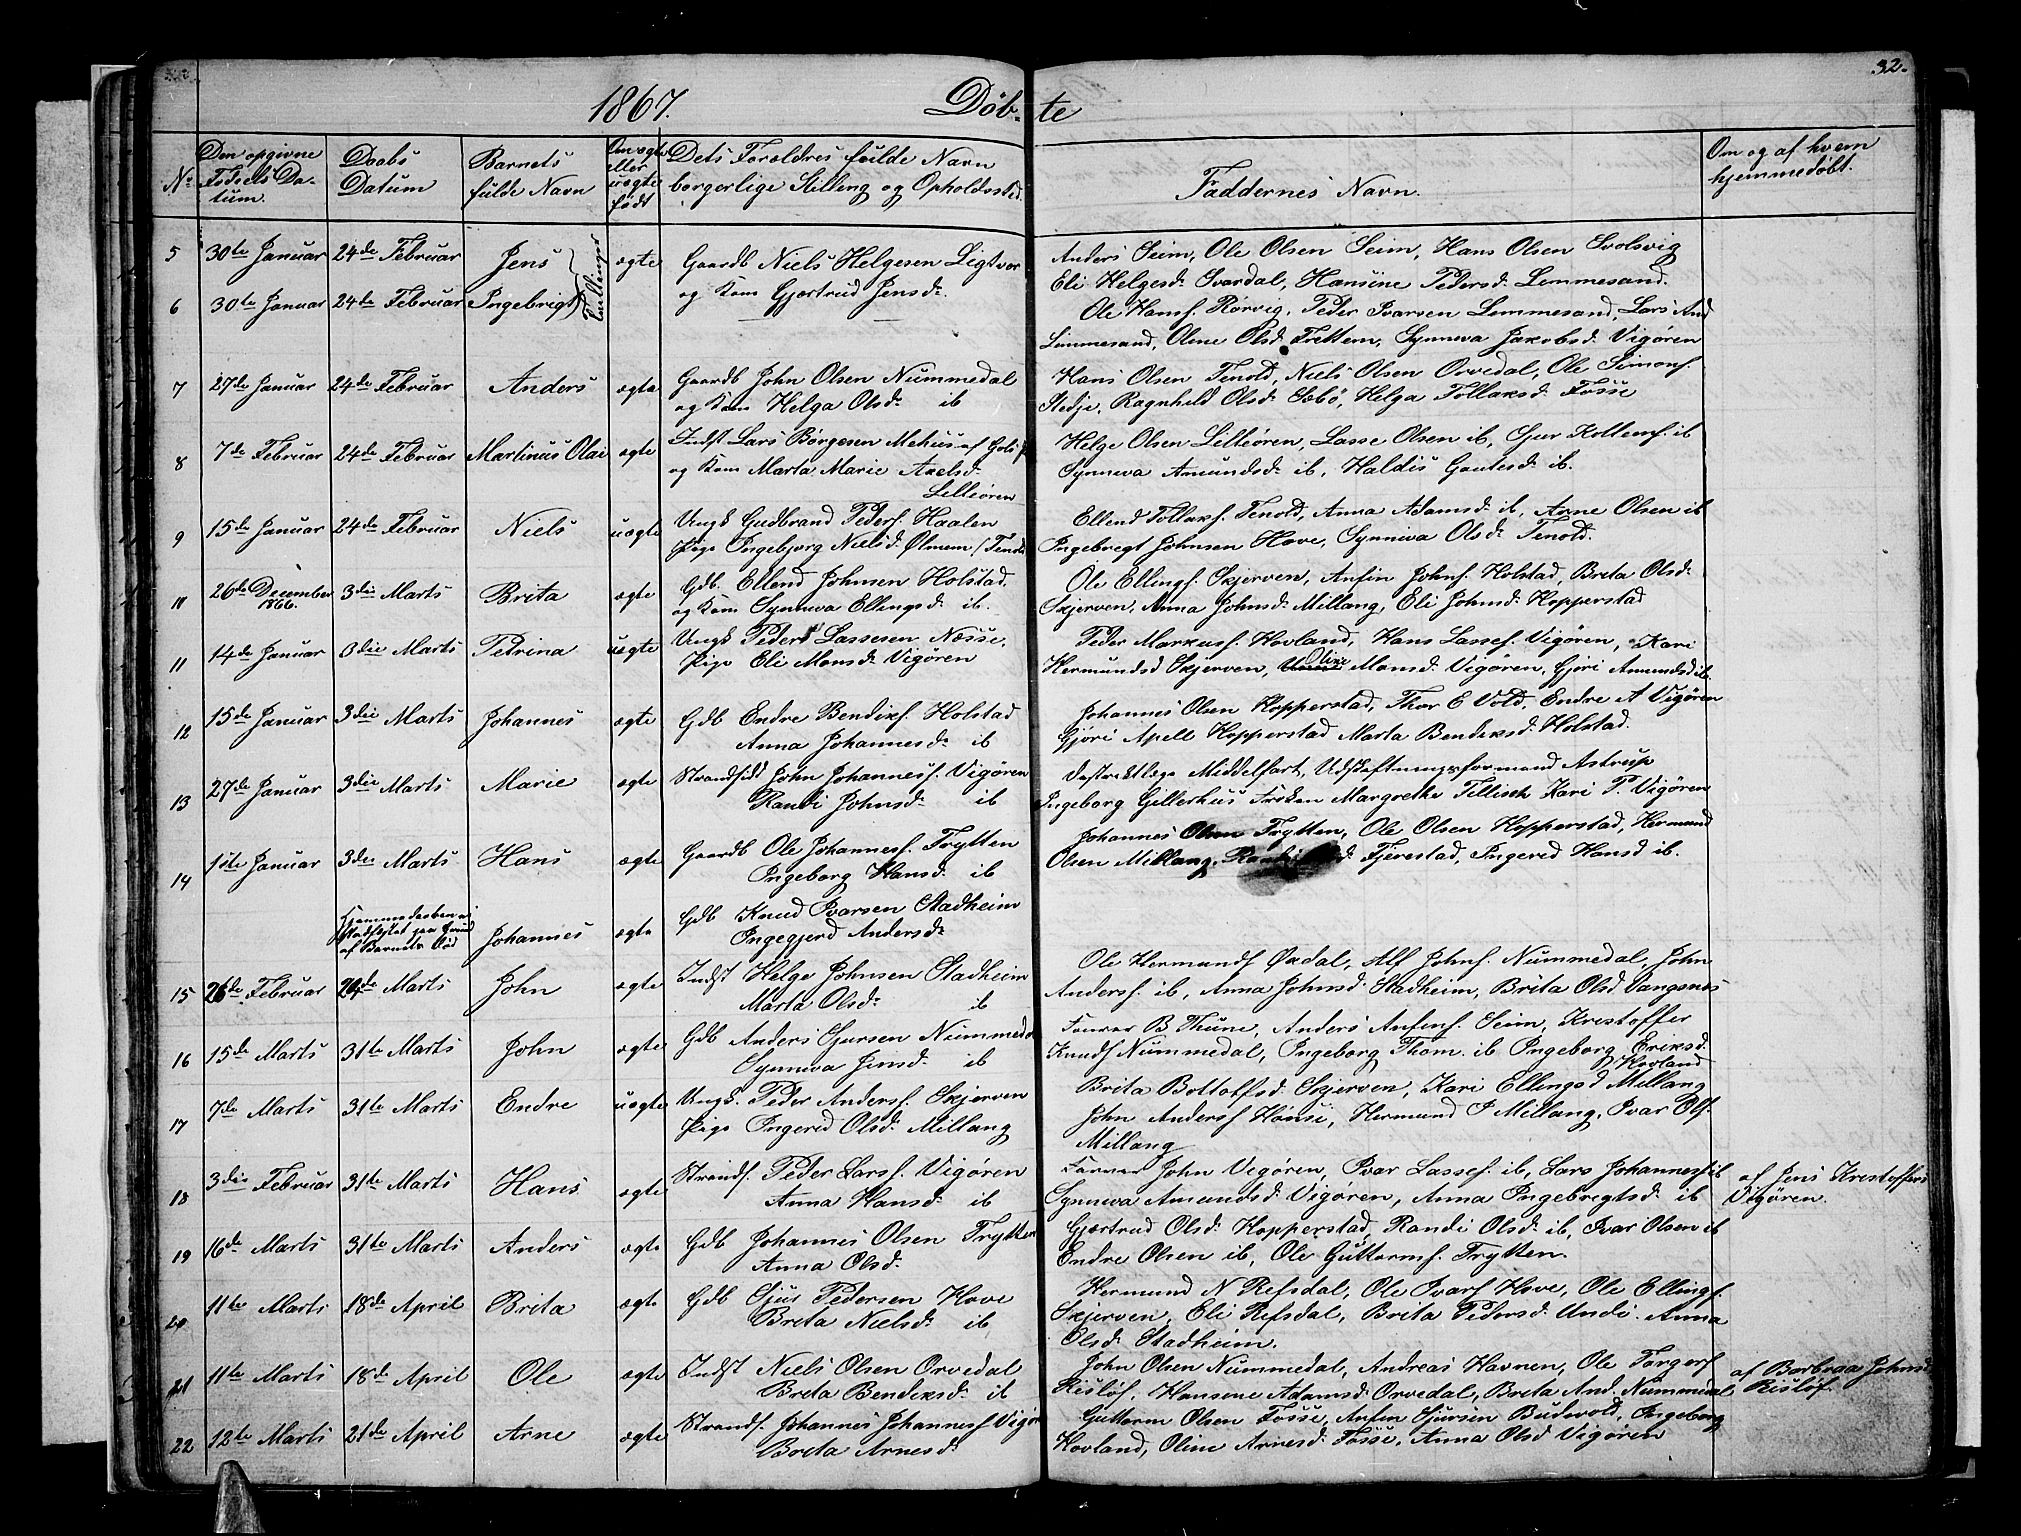 32.
1867. Døb- te
No
Den opgivne Fødsels Da- tum.
Daabs Datum
Barnets fulde Navn
Om ægte eller uægte født
Dets Foreldres fulde Navn borgerlige Stilling og Opholdssted.
Faddernes Navn.
Om og af hvem hjemmedøbt.
5 30te Januar 24de Februar Jens Tvillinger ægte Gaardb Niels Helgesen Ligtvor
Anders Seim, Ole Olsen Seim, Hans Olsen Svolsvig
Eli Helgesd. Svardal, Hansine Pedersd. Lemmesand.
6 30te Januar 24de Februar Ingebrigt og Kom Gjertrud Jensd.
Ole Hansf. Rörvig, Peder Ivarsen Lemmesand, Lars And
Limmesand, Oline Olsd. Frettem, Synneva Jakobsd. Vigören
7 27de Januar 24de Februar Anders ægte Gaardb John Olsen Nummedal
og Kom Helga Olsd. ib
Hans Olsen Tenold, Niels Olsen Orvedal, Ole Simonf.
Stedje, Ragnheld Olsd. Sæbö, Helga Tollaksd. Fosse
8 7de Februar 24de Februar Martinus Olai ægte Indst Lars Börgesen Mehus af Gols
og Kom Marta Marie Axelsd.
Lilleören
Helge Olsen Lilleören, Lasse Olsen ib, Sjur Kollemf. ib
Synneva Amundsd. ib, Haldis Gautesd. ib.
9 15de Januar 24de Februar Niels uægte Ungk Gudbrand Pedersf. Haalen
Pige Ingebjorg Nielsd. Ølmem/Tenold
Ellend Tollaksf. Tenold, Anna Adamsd. ib, Arne Olsen ib
Ingebregt Johnsen Hove, Synniva Olsd. Tenold.
10 26de December 1866. 3die Marts Brita ægte Gdb. Ellend Johnsen Holstad.
og Kom Synneva Ellingsd. ib.
Ole Ellingf. Skjerven, Anfin Johnf. Holstad, Breta Olsd.
Skjerven, Anna Johnsd. Millang, Eli Johnsd. Hopperstad
11 14de Januar 3die Marts Petrina uægte Ungk Peder Lassesen Næsse,
Pige Eli Monsd. Vigören
Peder Markusf. Hovland, Hans Lassef. Vigören, Kari
Hermundsd Skjerven, Oline Monsd. Vigören, Gjöri Amundsd ib.
12 15de Januar 3die Marts Johannes ægte Gdb Endre Bendixf. Holstad
Anna Johannesd. ib
Johannes Olsen Hopperstad, Thor E Vold, Endre A Vigören
Gjöri Apell Hopperstad Marta Bendeksd. Holstad.
13 27de Januar 3die Marts Marie ægte Strandsidd John Johannesf. Vigören
Randi Johnsd. ib
Distrektlæge Middelfart, Udskiftningsformand Astrup
Ingeborg Gillerhus Froken Margrethe Tellisch Kari P. Vigören
14 1ste Januar 3die Marts Hans ægte Gaardb Ole Johannesf. Frytten
Ingeborg Hansd. ib
Johannes Olsen Frytten, Ole Olsen Hopperstad, Hermund
Olsen Millang, Fjerestad, Ingered Hansd ib.
Johannes ægte Gdb Knud Ivarsen Stadheim
Ingegjerd Andersd.
15 26de Februar 24de Marts John ægte Indst Helge Johnsen Stadheim
Marta Olsd. ib
Ole Hermundf Øxdal, Alf Johnf. Nummedal, John
Andersf. ib, Anna Johnsd. Stadheim, Brita Olsd Vangsnes
16 15de Marts 31te Marts John ægte Gdb Anders Sjursen Nummedal
Synneva Jensd. ib
Fourer B Thune, Anders Anfinf. Seim, Krestoffer
Knudf Nummedal, Ingeborg Thom. ib Ingeborg Eriksd.
Hovland
17 7de Marts 31te Marts Endre uægte Ungk. Peder Andersf. Skjerven
Pige Ingered Olsd. Millang
Brita Bottolfsd. Skjerven, Kari Ellingsd Millang
John Andersf Hönsi, Hermund J Millang, Ivar Olf.
Millang
18 3die Februar 31te Marts Hans ægte Strands. Peder Larsf. Vigören
Anna Hansd. ib
John Vigören, Ivar Lassef. ib, Lars Johannesf ib
Synneva Amundsd Vigören, Anna Ingebregtsd. ib
af Jens Krestoffers
Vigören.
19 16de Marts 31te Marts Anders ægte Gdb Johannes Olsen Frytten
Anna Olsd.
Gjertrud Olsd. Hopperstad, Randi Olsd. ib, Ivar Olsen ib
Endre Olsen ib, Ole Guttormf. Frytten.
20 11te Marts 18de April Brita ægte Gdb Sjur Pedersen Hove
Brita Nielsd. ib
Hermund N Refsdal, Ole Ivarf Hove, Ole Ellingf.
Skjerven, Eli Refsdal, Brita Pedersd. Undi. Anna
Olsd. Stadheim.
21 11te Marts 18de April Ole ægte Indst Niels Olsen Orvedal
Brita Bendiksd. ib
John Olsen Nummedal, Andreas Havnen, Ole Torgerf
Risløf, Hansene Adamsd. Orvedal, Brita And. Nummedal
af Barbraa Johnsd
Risløf.
22 12te Marts 21de April Arne ægte Strandf. Johannes Johannesf Vigör
Breta Arnesd.
Guttorm Olsen Fosse, Anfin Sjursen Budevold, Ingeborg
Hovland, Oline Arnesd. Fosse, Anna Olsd Vigören